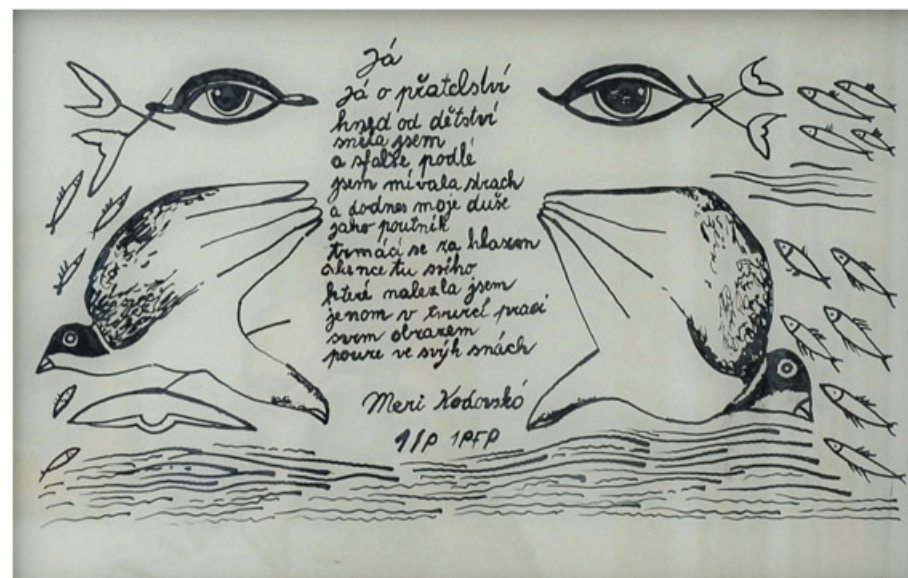 Já
Já o přatelství
hned od dětství
snëla jsem
a sfalše podlé
jsem mívala strach
a dodnes moje duše
jaho poutník
trmácí se za hlasem
tu svího
které nalezla jsem
jenom v tvurčí praci
svem obrazem
pouze ve svýh snách
Meri